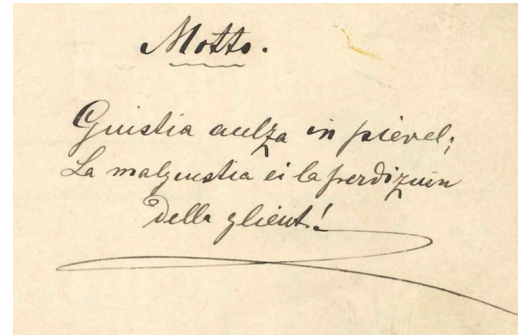 Motto.
Giustia aulza in pievel;
La malgiustia ei la perdiziun
della glieut!